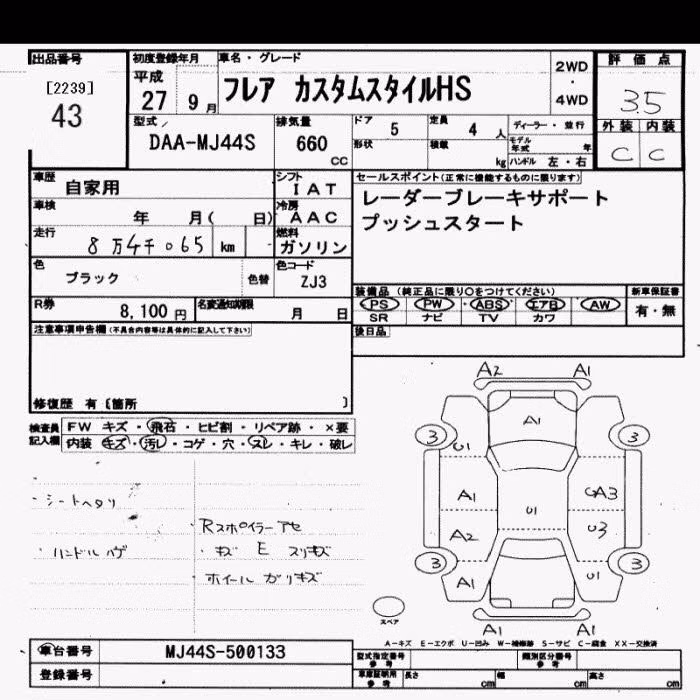 出品番号 初度登録年月 車名・グレード 2WD 評価点
[2239] 平成 フレア カスタムスタイルHS ・
43 27 9月 4WD 3.5
型式 排気量 ドア 5 定員 4人 ディーラー・並行 外装 内装
DAA-MJ44S 660 cc 形状 積載 kg モデル年式 年 C C
ハンドル 左・右
車歴 自家用 シフト IAT セールスポイント(正常に機能するものに限ります)
車検 年 月( 日) 冷房 AAC レーダーブレーキサポート
走行 8万4千065 km 燃料 ガソリン プッシュスタート
色 ブラック 色替 色コード ZJ3
装備品 (純正品に限り○をつけてください) 新車保証書
R券 8,100円 名変通知期限 月 日 PS PW ABS エアB AW 有・無
SR ナビ TV カワ
注意事項申告欄(不具合内容等は具体的に記入して下さい) 後日品
修復歴 有〔箇所 〕
検査員 FW キズ・飛石・ヒビ割・リペア跡・×要
記入欄 内装 キズ・汚レ・コゲ・穴・スレ・キレ・破レ
A2 A1
A1
3 U1 3
A1 U1 A3
A2 U3
3 A1 U1 3
A1 A1
・シートヘタリ
・Rスポイラーアセ
・ハンドルハゲ ・キズ E スリキズ
ホイールガリキズ
スペア
A-キズ E-エクボ U-凹み W-補修跡 S-サビ C-腐食 XX-交換済
車台番号 MJ44S-500133 型式指定番号 参考 類別区分番号 参考
登録番号 車庫証明用 参考 長さ cm 幅 cm 高さ cm